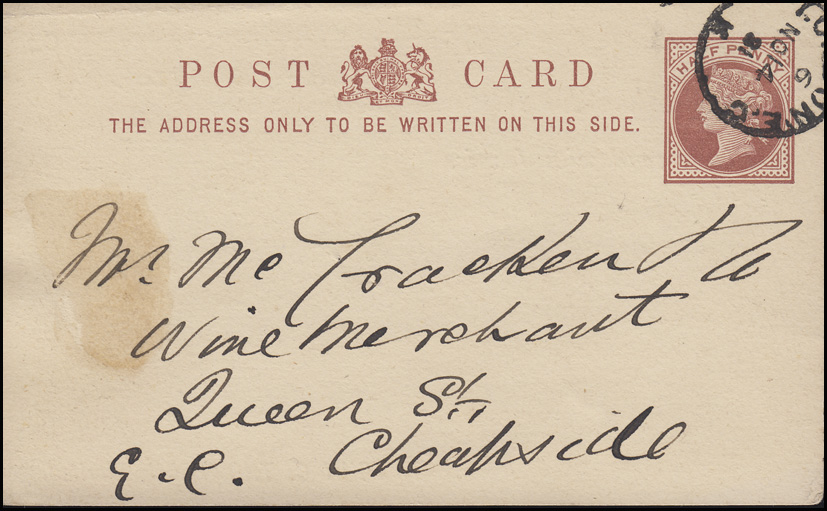 POST CARD
THE ADDRESS ONLY TO BE WRITTEN ON THIS SIDE.
HALF PENNY
LONDON E.C
NO 6
Mr. Mc Cracken
Wine Merchant
Queen St.
Cheapside
E.C.